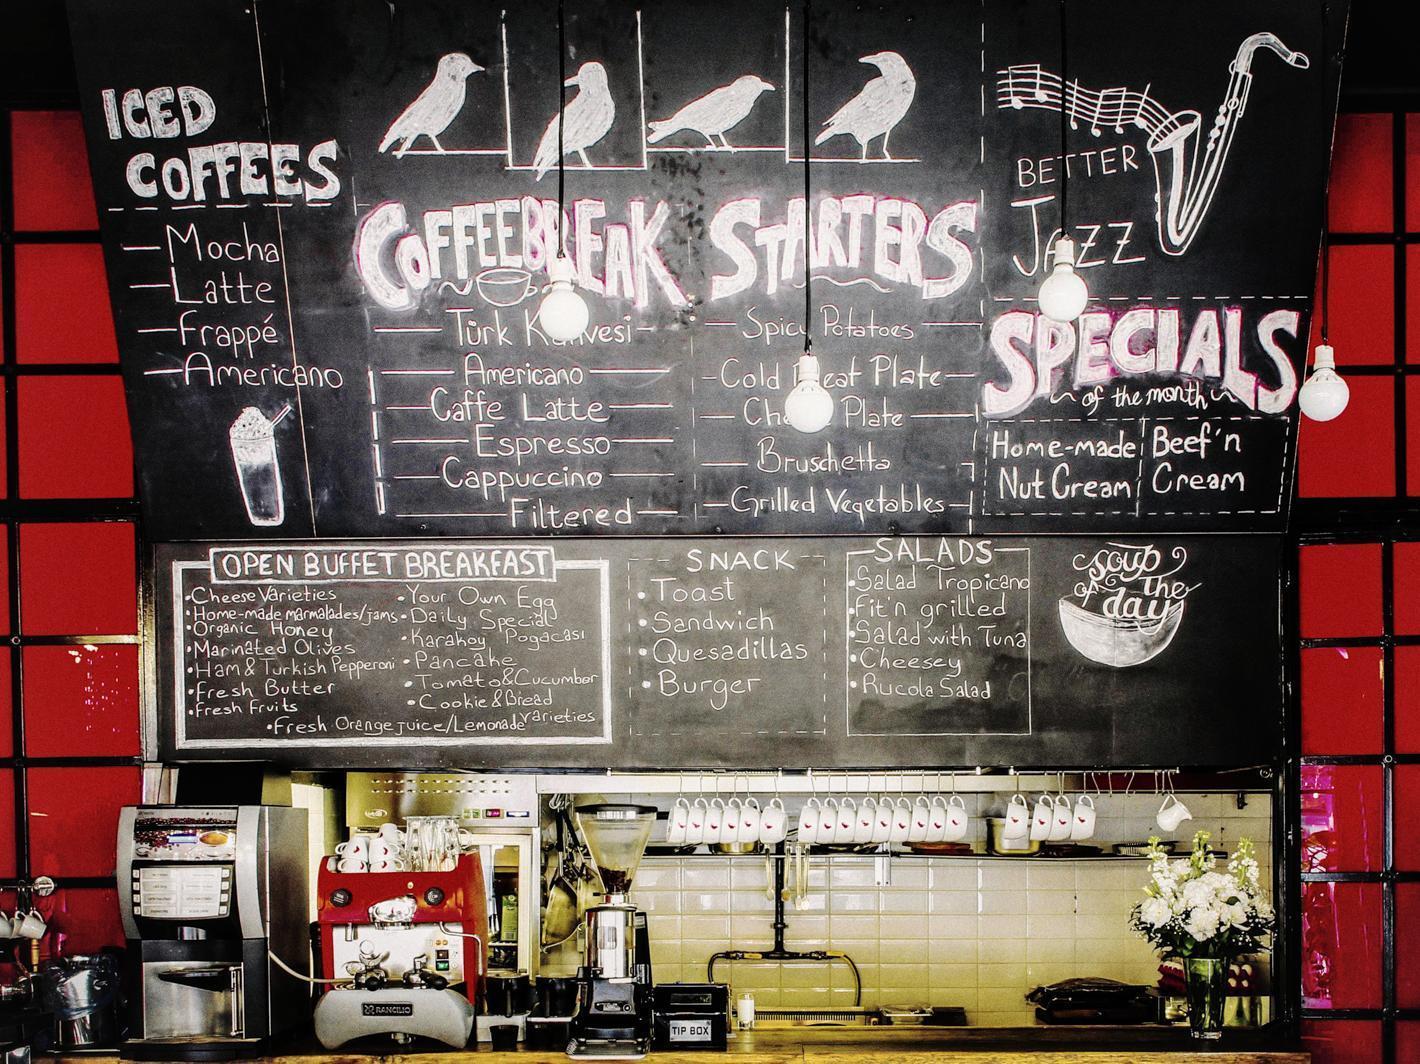 ICED
COFFEES
—Mocha
—Latte
—Frappé
—Americano
COFFEEBREAK
Türk
Americano
Caffe Latte
Espresso
Cappuccino
Filtered
STARTERS
Spicy Potatoes
Cold Plate
Plate
Bruschetta
Grilled Vegetables
BETTER
JAZZ
SPECIALS
of the month
Home-made
Nut Cream
Beef'n
Cream
OPEN BUFFET BREAKFAST
•Cheese Varieties
•Home-made marmalades/jams
•Organic Honey
•Marinated Olives
•Ham & Turkish Pepperoni
•Fresh Butter
•Fresh Fruits
•Your Own Egg
•Daily Special
•Karakoy Pogacası
•Pancake
•Tomato&Cucumber
•Cookie&Bread
•Fresh Orange juice/Lemonade varieties
SNACK
•Toast
•Sandwich
•Quesadillas
•Burger
SALADS
•Salad Tropicano
•Fit'n grilled
•Salad with Tuna
•Cheesey
•Rucola Salad
Soup
of The
day
RANCILIO
TIP BOX